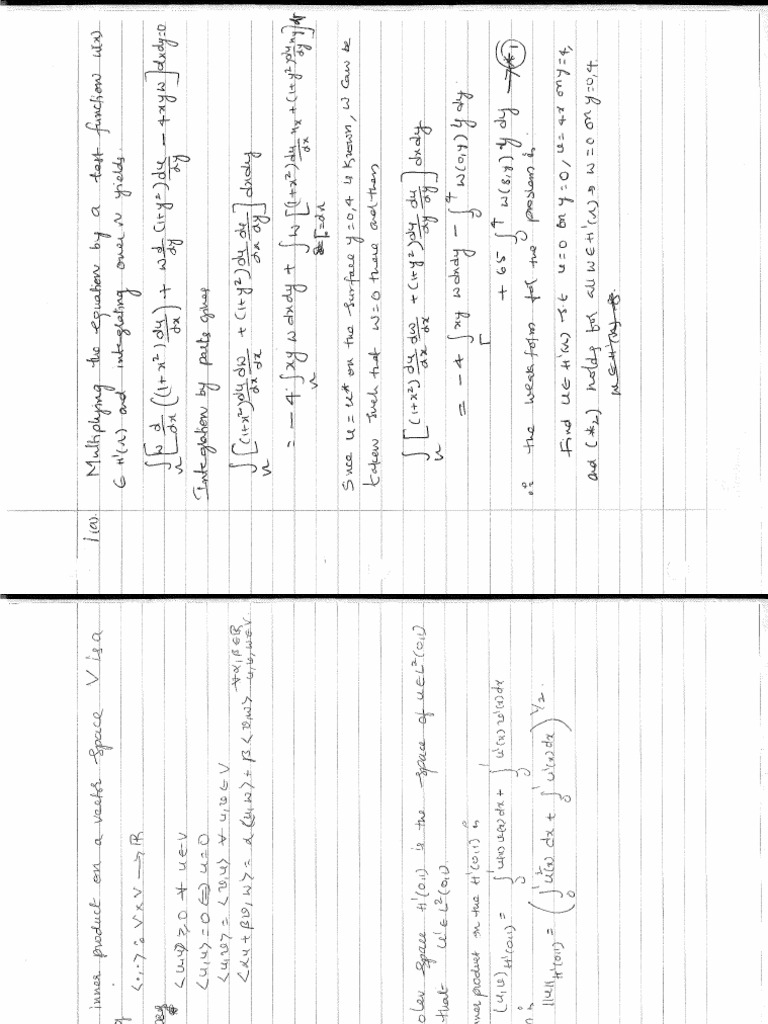 1(a). Multiplying the equation by a test function w(x)
∈ H'(Ω) and integrating over Ω yields.
∫_Ω [w d/dx ((1+x²) du/dx) + w d/dy (1+y²) du/dy - 4xyw] dxdy = 0
Integration by parts gives
∫_Ω [(1+x²) du/dx dw/dx + (1+y²) du/dx du/dy] dxdy
= -4 ∫_Ω xy w dxdy + ∫ w [(1+x²) du/dx n_x + (1+y²) du/dy n_y] ds
Since u = u* on the surface y=0,4 is known, w can be
taken such that w=0 there and then
∫_Ω [(1+x²) du/dx dw/dx + (1+y²) du/dy du/dy] dxdy
= -4 ∫ xy w dxdy - ∫_0^4 w(0,y) y dy
+ 65 ∫_0^4 w(8,y) y dy
∴ the weak form for the problem is.
Find u ∈ H'(Ω) s.t u=0 on y=0, u=4x on y=4,
and (*2) holds for all w ∈ H'(Ω) → w=0 on y=0,4.
inner product on a vector space V is a
<.,.> : V×V → ℝ
<u,u> ≥ 0 ∀ u ∈ V
<u,u> = 0 ⇔ u=0
<u,v> = <v,u> ∀ u,v ∈ V
<αu + βv, w> = α<u,w> + β<v,w> ∀ α,β ∈ ℝ
u,v,w ∈ V
space H'(0,1) is the space of u ∈ L²(0,1)
that u' ∈ L²(0,1).
inner product on the H'(0,1) is
(u,v)_H'(0,1) = ∫_0^1 u(x) v(x) dx + ∫_0^1 u'(x) v'(x) dx
||u||_H'(0,1) = (∫_0^1 u²(x) dx + ∫_0^1 u'(x) dx)^1/2.